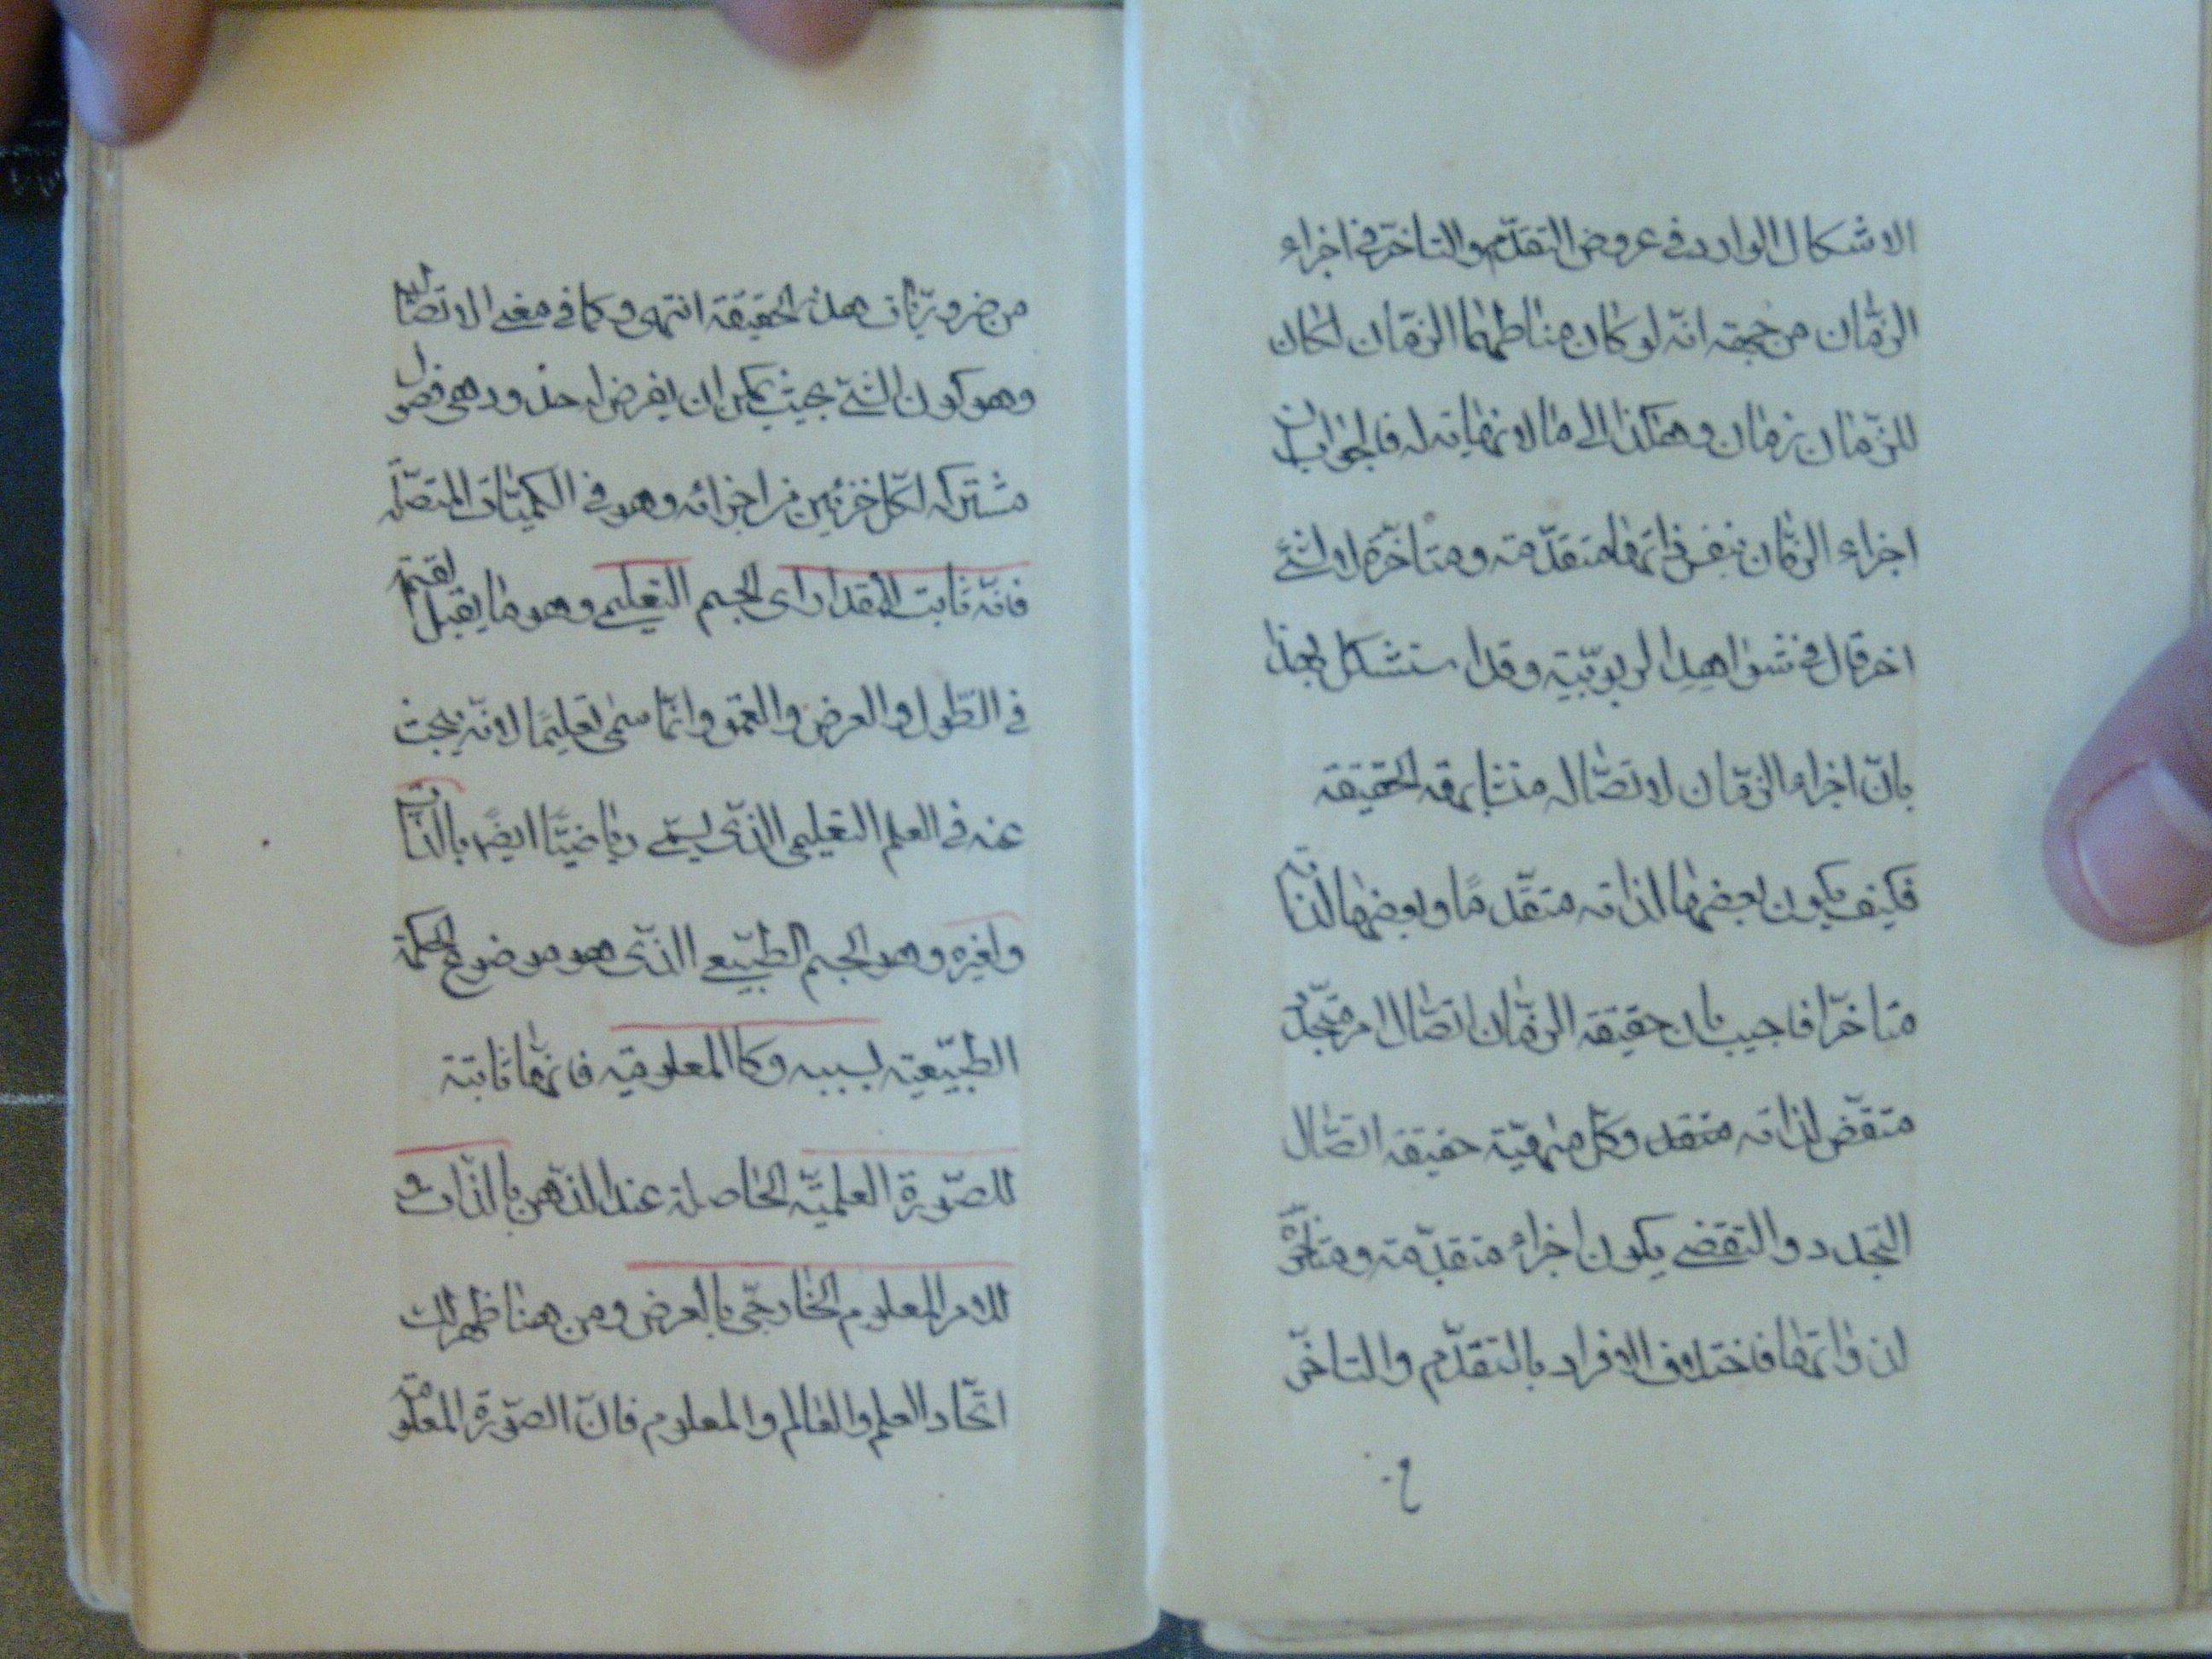 الاشكال الوارد فى عروض التقدّم والتاخّر فى اجزاء
الزمّان من جهة انّه لو كان مناطهما الزمّان لكان
للزّمان زمان وهكذا الى ما لا نهاية له فالجواب ان
اجزاء الزمّان بنفس ذاتها متقدّمة ومتاخّرة لا لشئ
اخر قال فى شواهد الربوبيّة وقد استشكل بهذا
بانّ اجزاء الزمّان لاتصّاله متشابهة الحقيقة
فكيف يكون بعضها لذاته متقدّماً وبعضها لذاته
متاخّرا فاجيب بان حقيقة الزمّان اتصّال امر متجدّد
متقضّ لذاته متقد وكل مهيّة حقيقة اتصّال
التجدد والتقضى يكون اجزاء متقدّمة ومتاخّرة
لذواتها فاختلاف الافراد بالتقدّم والتاخّر
من ضروريّات هذه الحقيقة انتهى وكما فى معنى الاتصّال
وهو كون الشئ بحيث يمكن ان يفرض له حدود هى فصول
مشتركه لكل جزئين من اجزائه وهو فى الكميّات المتصّله
فانّه ثابت للمقدار اى الجسم التعليمى وهو ما يقبل القسمة
فى الطّول والعرض والعمق وانمّا سمى تعليميّا لانّه يبحث
عنه فى العلم التعليمى الذّى يسمّى رياضيّا ايضً بالذّات
ولغيره وهو الجسم الطبيّعى الذّى هو موضوع الحكمة
الطبيّعية بسببه وكالمعلومية فانهّا ثابتة
للصّورة العلميّه الحاصلة عند الذّهن بالذّات و
للامر المعلوم الخارجىّ بالعرض ومن هنا ظهر لك
اتحّاد العلم والعالم والمعلوم فانّ الصّورة المعلومة